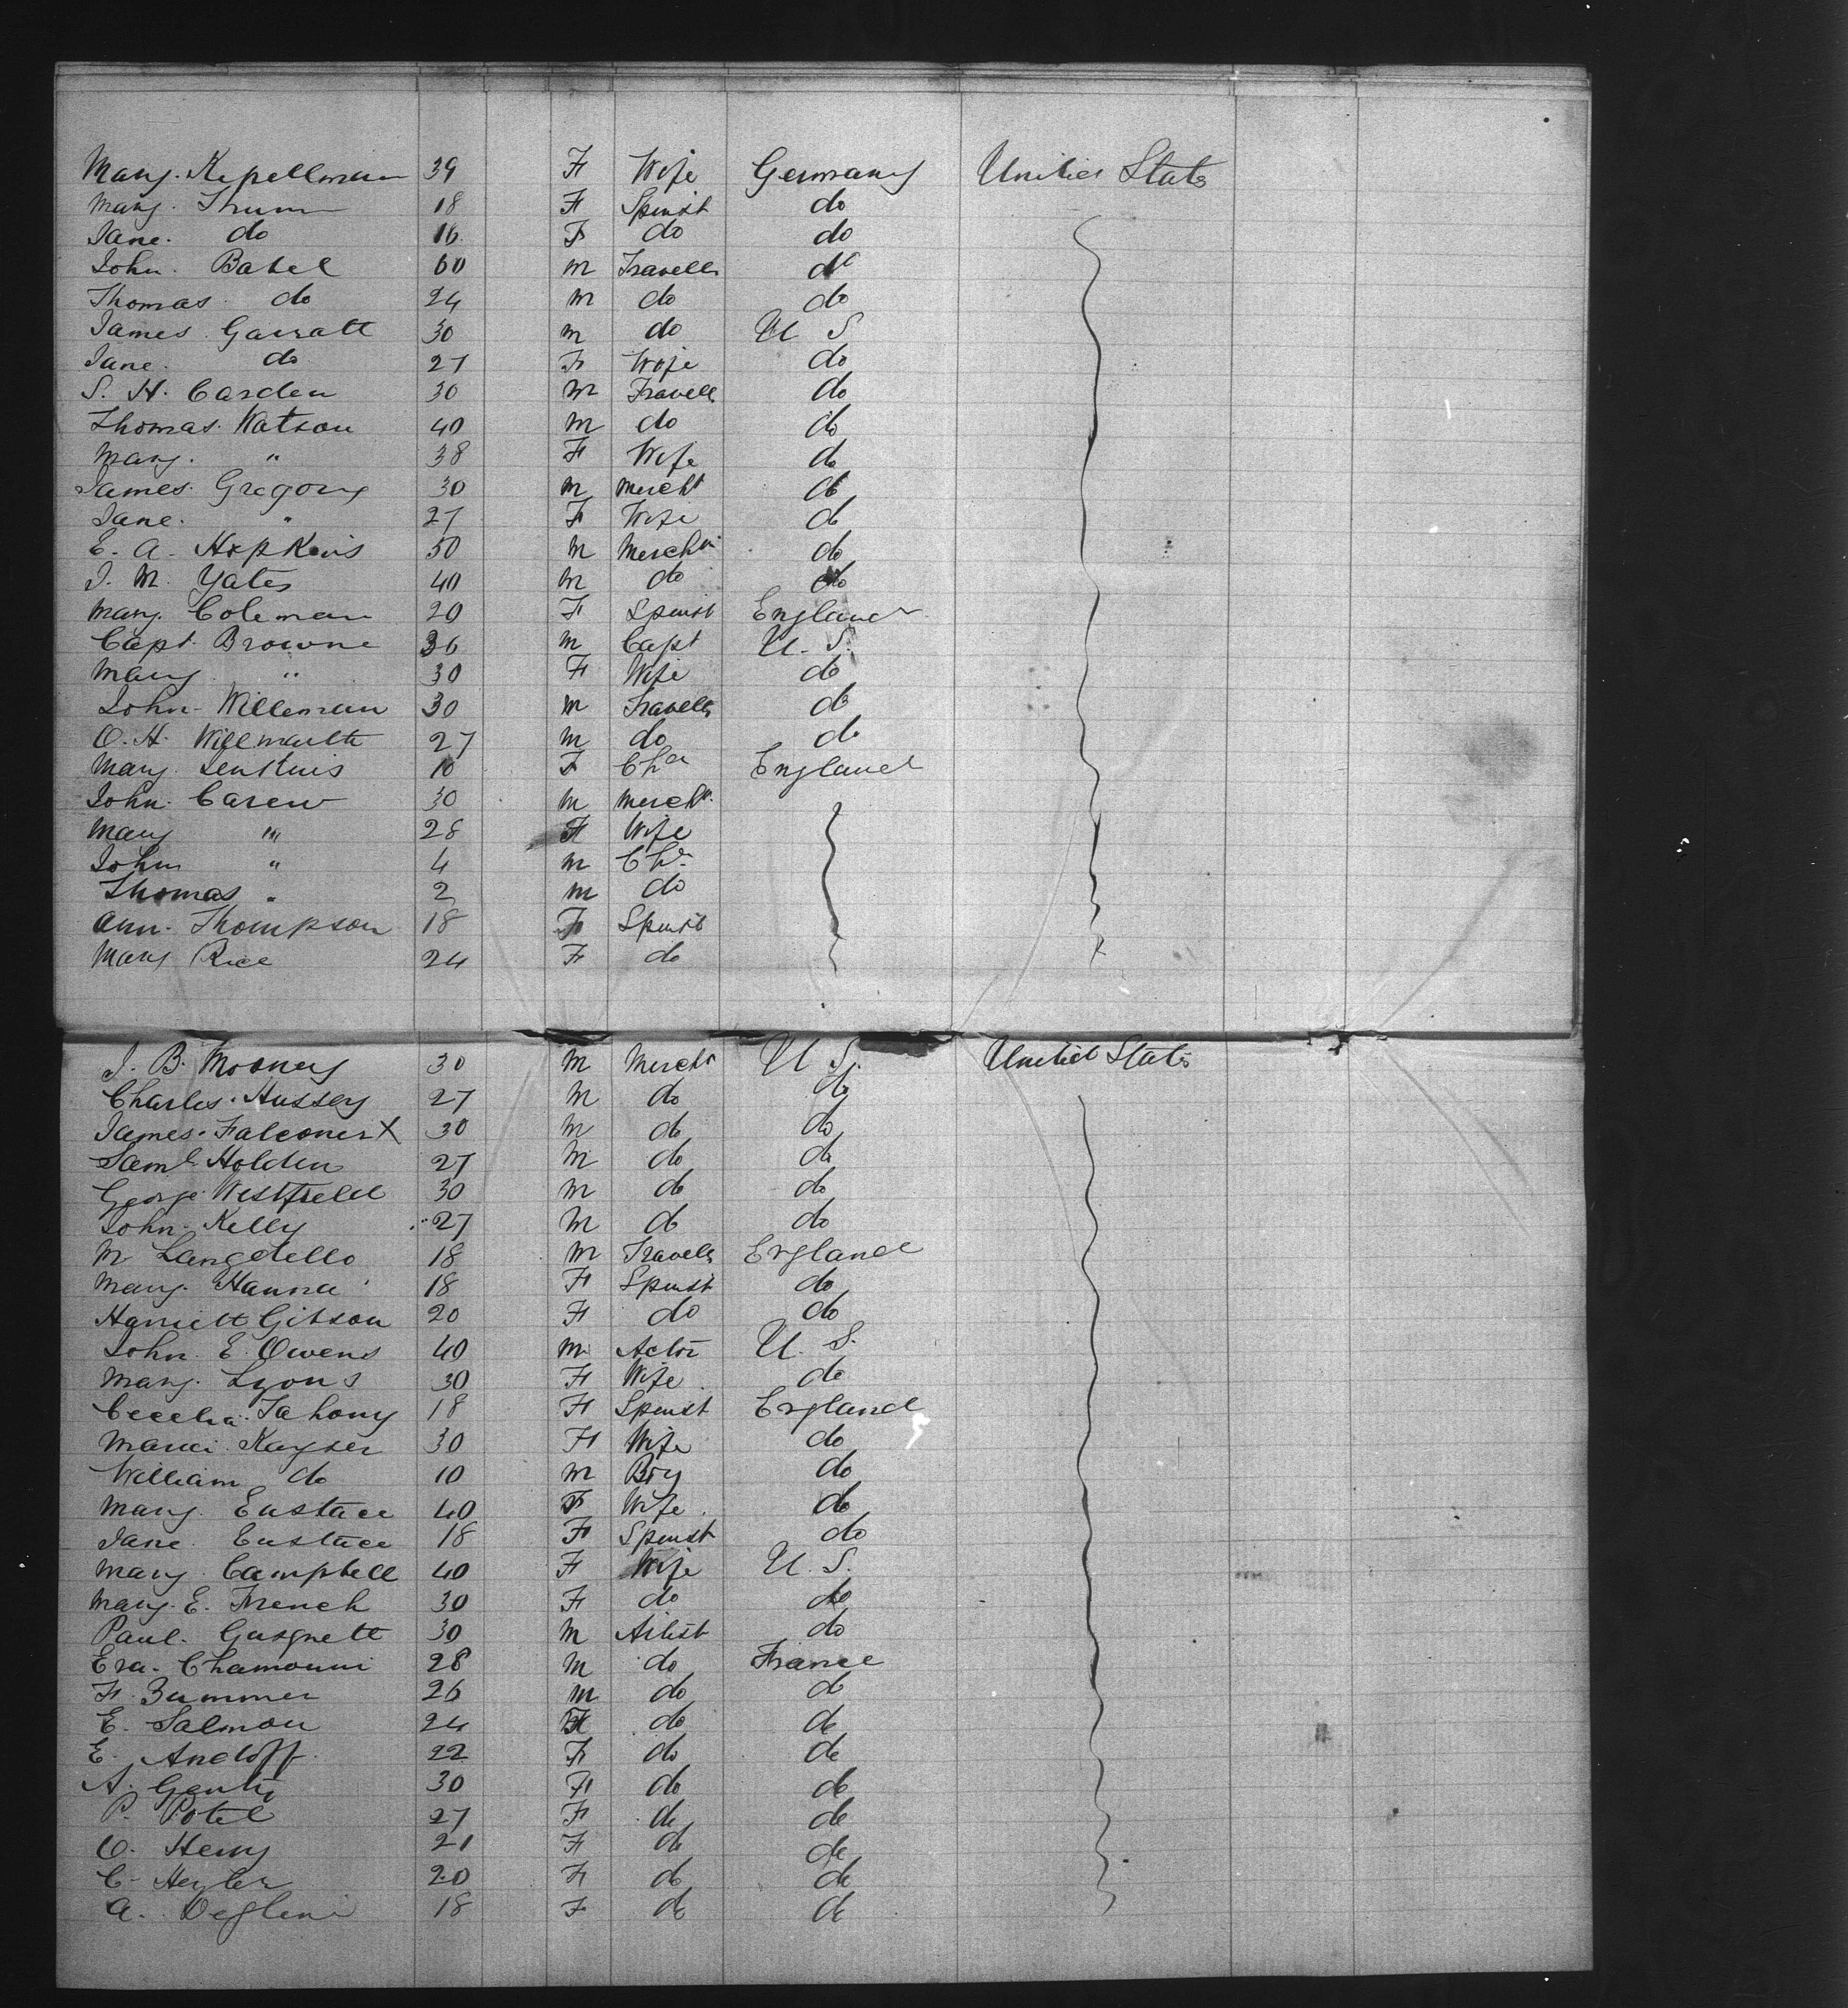 Mary. Kepellman 39 F Wife Germany United States
Mary. Thum 18 F Spinst do
Jane. do 16 F do do
John. Babel 60 M Travellr do
Thomas do 24 M do do
James Garratt 30 M do U S
Jane. do 27 F Wife do
S. H. Carden 30 M Travellr do
Thomas Watson 40 M do do
Mary. " 38 F Wife do
James. Gregory 30 M Mercht do
Jane. " 27 F Wife do
E. A. Hopkins 50 M Mercht do
J. M. Yates 40 M do do
Mary. Coleman 20 F Spinst England
Capt. Browne 36 M Capt U. S.
Mary " 30 F Wife do
John Willeman 30 M Travellr do
O. H. Willmarth 27 M do do
Mary. Jenkins 10 F Chd England
John. Carew 30 M Mercht
Mary " 28 F Wife
John " 4 M Chd
Thomas " 2 M do
Ann. Thompson 18 F Spinst
Mary Rice 24 F do
J. B. Mooney 30 M Mercht U S. United States
Charles. Hussey 27 M do do
James. Falconer X 30 M do do
Saml Holden 27 M do do
George Westfield 30 M do do
John. Kelly 27 M do do
M Langdello 18 M Travellr England
Mary. Hanna 18 F Spinst do
Harriett Gibson 20 F do do
John E. Owens 40 M Actor U. S.
Mary. Lyons 30 F Wife do
Cecelia. Tahony 18 F Spinst England
Marie Kayser 30 F Wife do
William do 10 M Boy do
Mary. Eustace 40 F Wife do
Jane Eustace 18 F Spinst do
Mary Campbell 40 F Wife U. S.
Mary. E. French 30 F do do
Paul. 30 M Artist do
Era. Chamouni 28 M do France
F. Zummer 26 M do do
E. Salmon 24 do do
E. Andoff 22 F do do
A. Genty 30 F do do
P. Potel 27 F do do
O. Henry 21 F do do
C. Heyler 20 F do do
A. 18 F do do